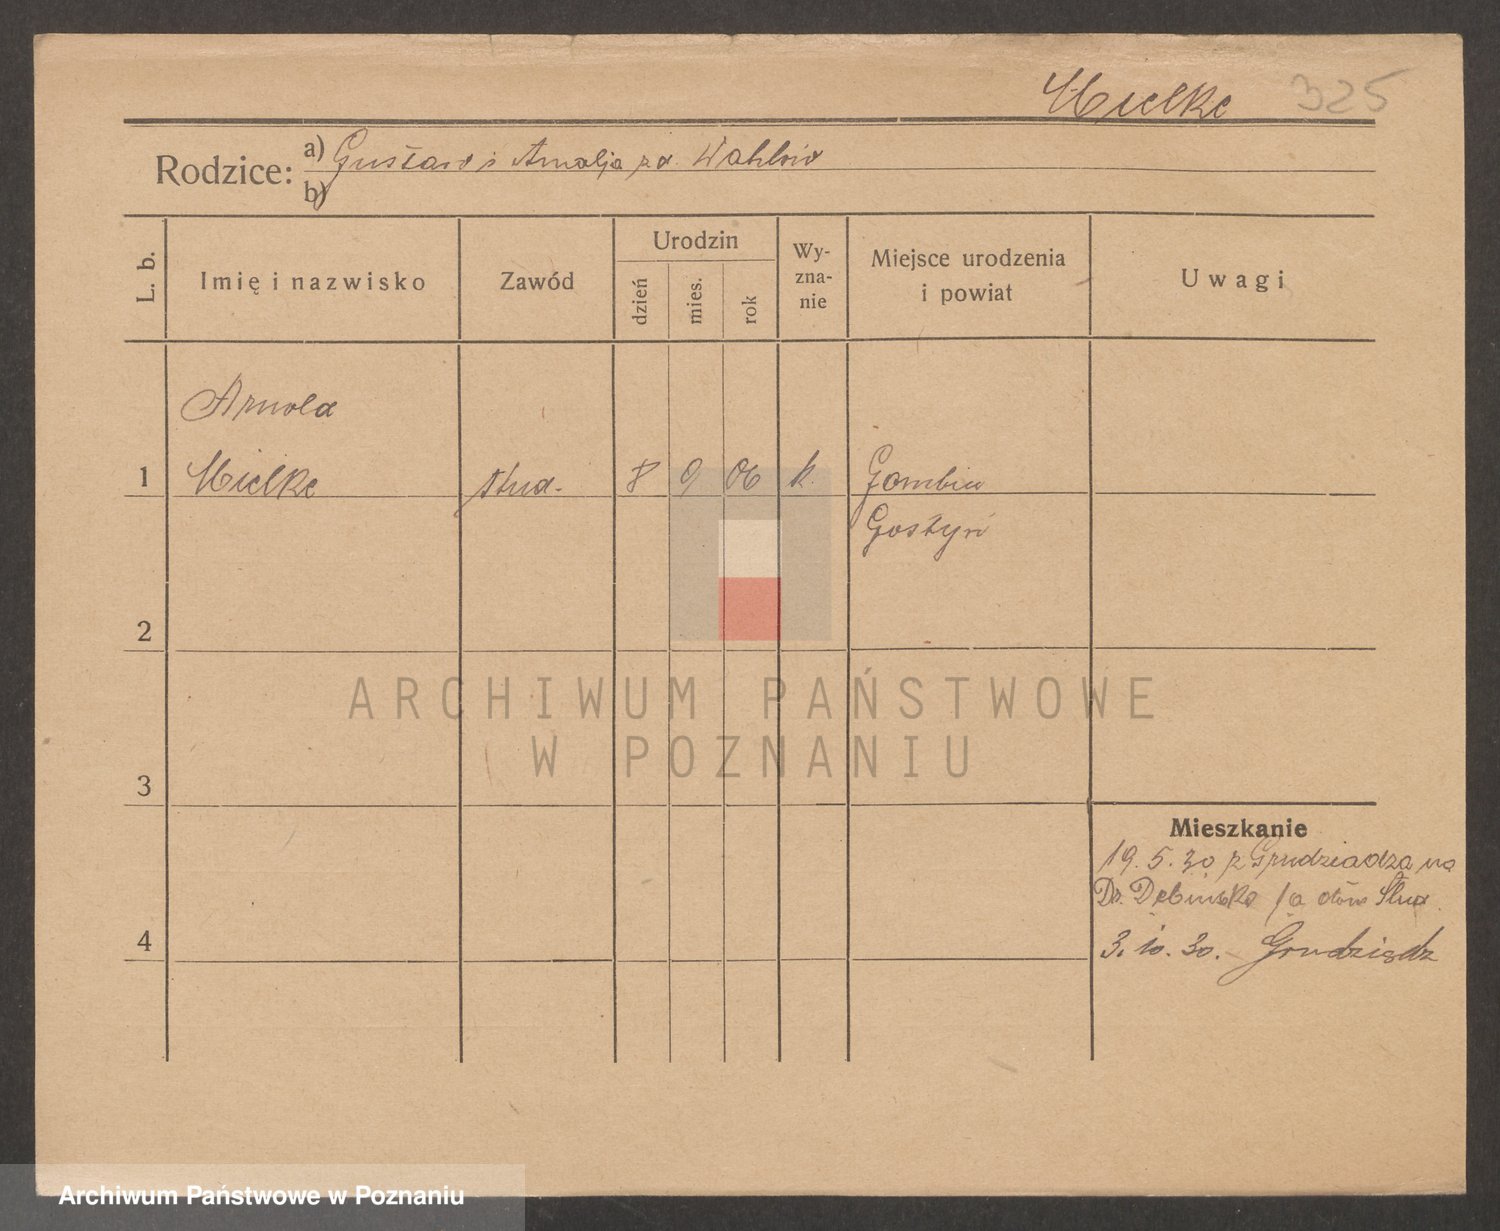 Mielke 325
Rodzice: a) Gustaw i Amalja
b)
L. b.
Imię i nazwisko
Zawód
Urodzin
dzień
mies.
rok
Wy-
zna-
nie
Miejsce urodzenia
i powiat
Uwagi
Arnold
1 Mielke stud. 8 9 06 k. Gombin
Gostyń
2
3
4
Mieszkanie
19. 5. 30 z Grudziadza na
Dr. Dębińska
3. 10. 30. - Grudziądz
ARCHIWUM PAŃSTWOWE
W POZNANIU
Archiwum Państwowe w Poznaniu